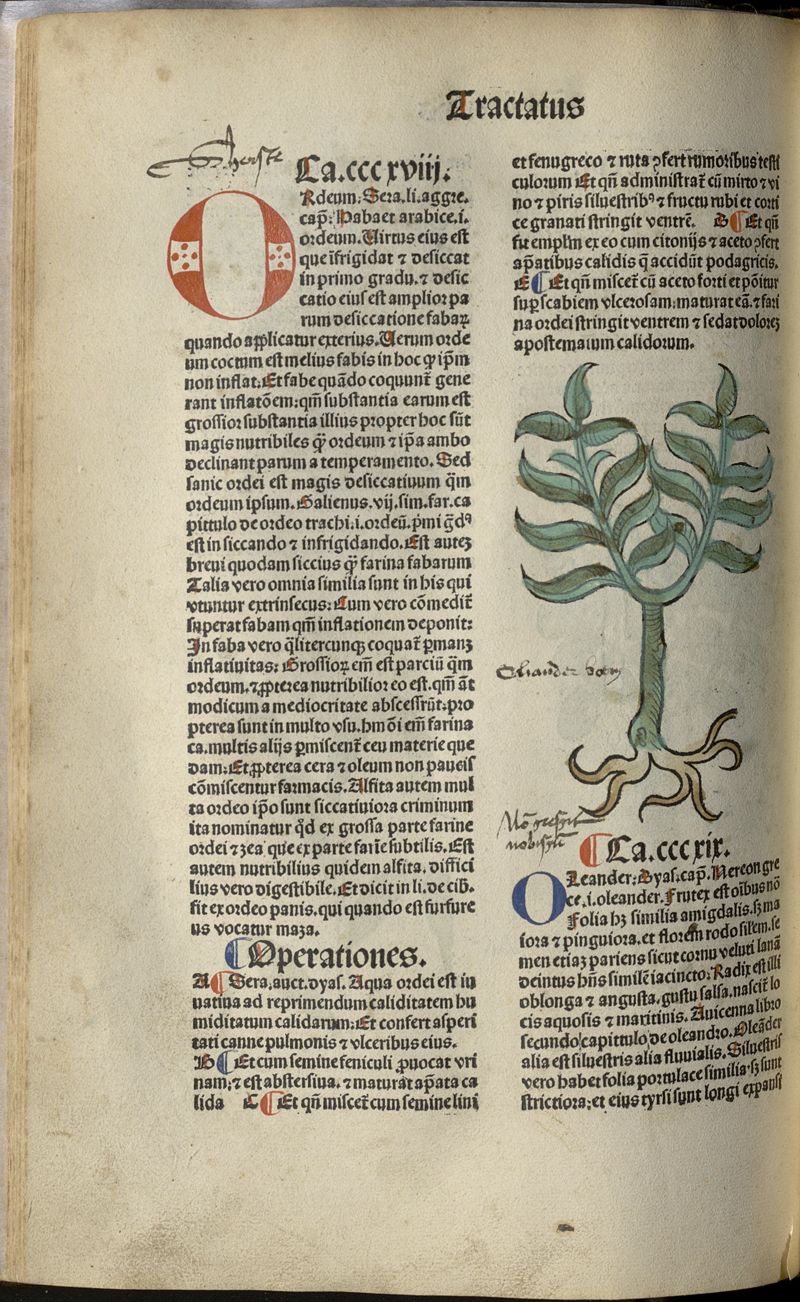 Tractatus
gherste
Ca.cccxviij.
ORdeum. Sera.li.aggre.
cap̄. Habaet arabice.i.
ordeum. Uirtus eius est
que īfrigidat ⁊ desiccat
in primo gradu. ⁊ desic
catio eius est amplior pa
rum desiccatione fabaꝝ
quando applicatur exterius. Uerum orde
um coctum est melius fabis in hoc ꝙ ip̄m
non inflat. Et fabe quādo coquunt̃ gene
rant inflatōem: qm̄ substantia earum est
grossior substantia illius propter hoc sūt
magis nutribiles qͣ̄ ordeum ⁊ ip̄a ambo
declinant parum a temperamento. Sed
sanic ordei est magis desiccatiuum q̄m
ordeum ipsum. Galienus. vij. sim. far. ca
pittulo de ordeo trachi.i. ordeū. p̄mi ḡdꝰ
est in siccando ⁊ infrigidando. Est autez
breui quodam siccius qͣ̄ farina fabarum
Talia vero omnia similia sunt in his qui
vtuntur extrinsecus: Cum vero cōmedit̃
superat fabam qm̄ inflationem deponit:
In faba vero q̄litercunqꝫ coquat̃ ꝑmanꝫ
inflatiuitas: Grossioꝝ em̄ est parciū q̄m
ordeum. ⁊ ꝓpterea nutribilior eo est. qm̄ āt
modicum a mediocritate abscessrūt. pro
pterea sunt in multo vsu. hm̄ōi em̄ farina
ca. multis alijs ꝑmiscent̃ ceu materie que
dam: Et ꝓpterea cera ⁊ oleum non paucis
cōmiscentur farmacis. Alfita autem mul
ta ordeo ip̄o sunt siccatiuiora criminum
ita nominatur q̄d ex grossa parte farine
ordei ⁊ zea que ex parte farīe subtilis. Est
autem nutribilius quidem alfita. diffici
lius vero digestibile. Et dicit in li. de cib.
fit ex ordeo panis. qui quando est furfure
us vocatur maza.
¶Operationes.
A ¶Sera. auct. dyas. Aqua ordei est iu
uatiua ad reprimendum caliditatem hu
miditatum calidarum: Et confert asperi
tati canne pulmonis ⁊ vlceribus eius.
B ¶Et cum semine feniculi ꝓuocat vri
nam: ⁊ est abstersiua. ⁊ maturat ap̄ata ca
lida C ¶Et qn̄ miscet̃ cum semine lini
et fenugreco ⁊ ruta ꝯfert rumoribus testi
culorum Et qn̄ administrat̃ cū mirto ⁊ vi
no ⁊ piris siluestribꝰ ⁊ fructu rubi et corti
ce granati stringit ventrē. D ¶Et qn̄
fit emplm̄ ex eo cum citonijs ⁊ aceto ꝯfert
ap̄atibus calidis q̄ accidūt podagricis.
E ¶Et qn̄ miscet̃ cū aceto forti et pōitur
suꝑ scabiem vlcerosam: maturat eā. ⁊ fari
na ordei stringit ventrem ⁊ sedat dolorez
apostematum calidorum.
Oliander boem
Nō crescit
nobiscū
¶Ca.cccxix.
OLeander: Dyas. cap̄. Nereon gre
ce.i. oleander. Frutex est oībus nō
Folia hꝫ similia amigdalis. sꝫ ma
iora ⁊ pinguiora. et florem rodo silem. se
men etiaꝫ pariens sicut cornu veluti lanā
deintus hn̄s similē iacincto: Radix est illi
oblonga ⁊ angusta. gustu salsa. nascit̃ lo
cis aquosis ⁊ maritinis. Auicenna libro
secundo capittulo de oleandro. Oleāder
alia est siluestris alia fluuialis. Siluestris
vero habet folia portulace similia. sꝫ sunt
strictiora: et eius tyrsi sunt longi expansi